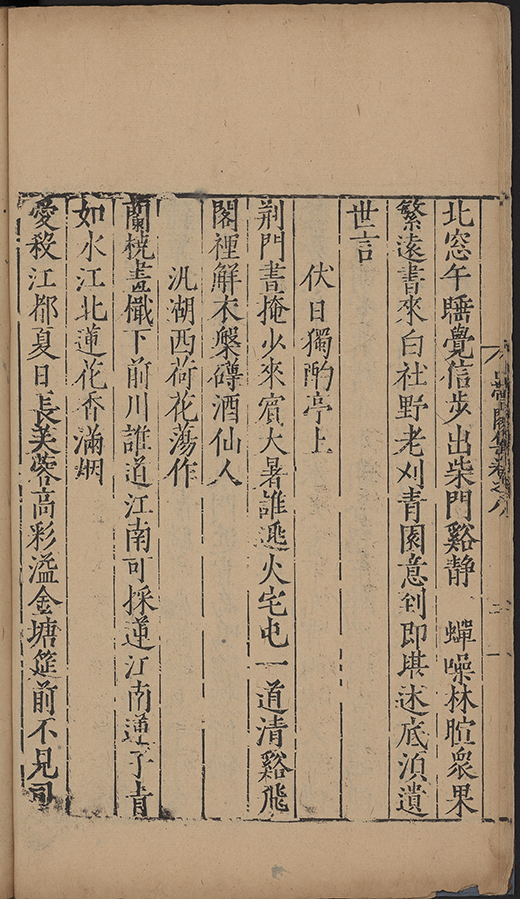 北窓午睡覺信步出柴門谿静 蟬噪林暄衆果
繁遠書來白社野老刈青園意到即堪述底湏遺
世言
伏日獨酌亭上
荆門晝掩少來賔大暑誰逃火宅屯一道清谿飛
閣裡解衣槃礡酒仙人
汎湖西荷花蕩作
蘭橈畫儎下前川誰道江南可採蓮江南蓮子青
如水江北蓮花香滿烟
愛殺江都夏日長芙蓉高彩溢金塘筵前不見司